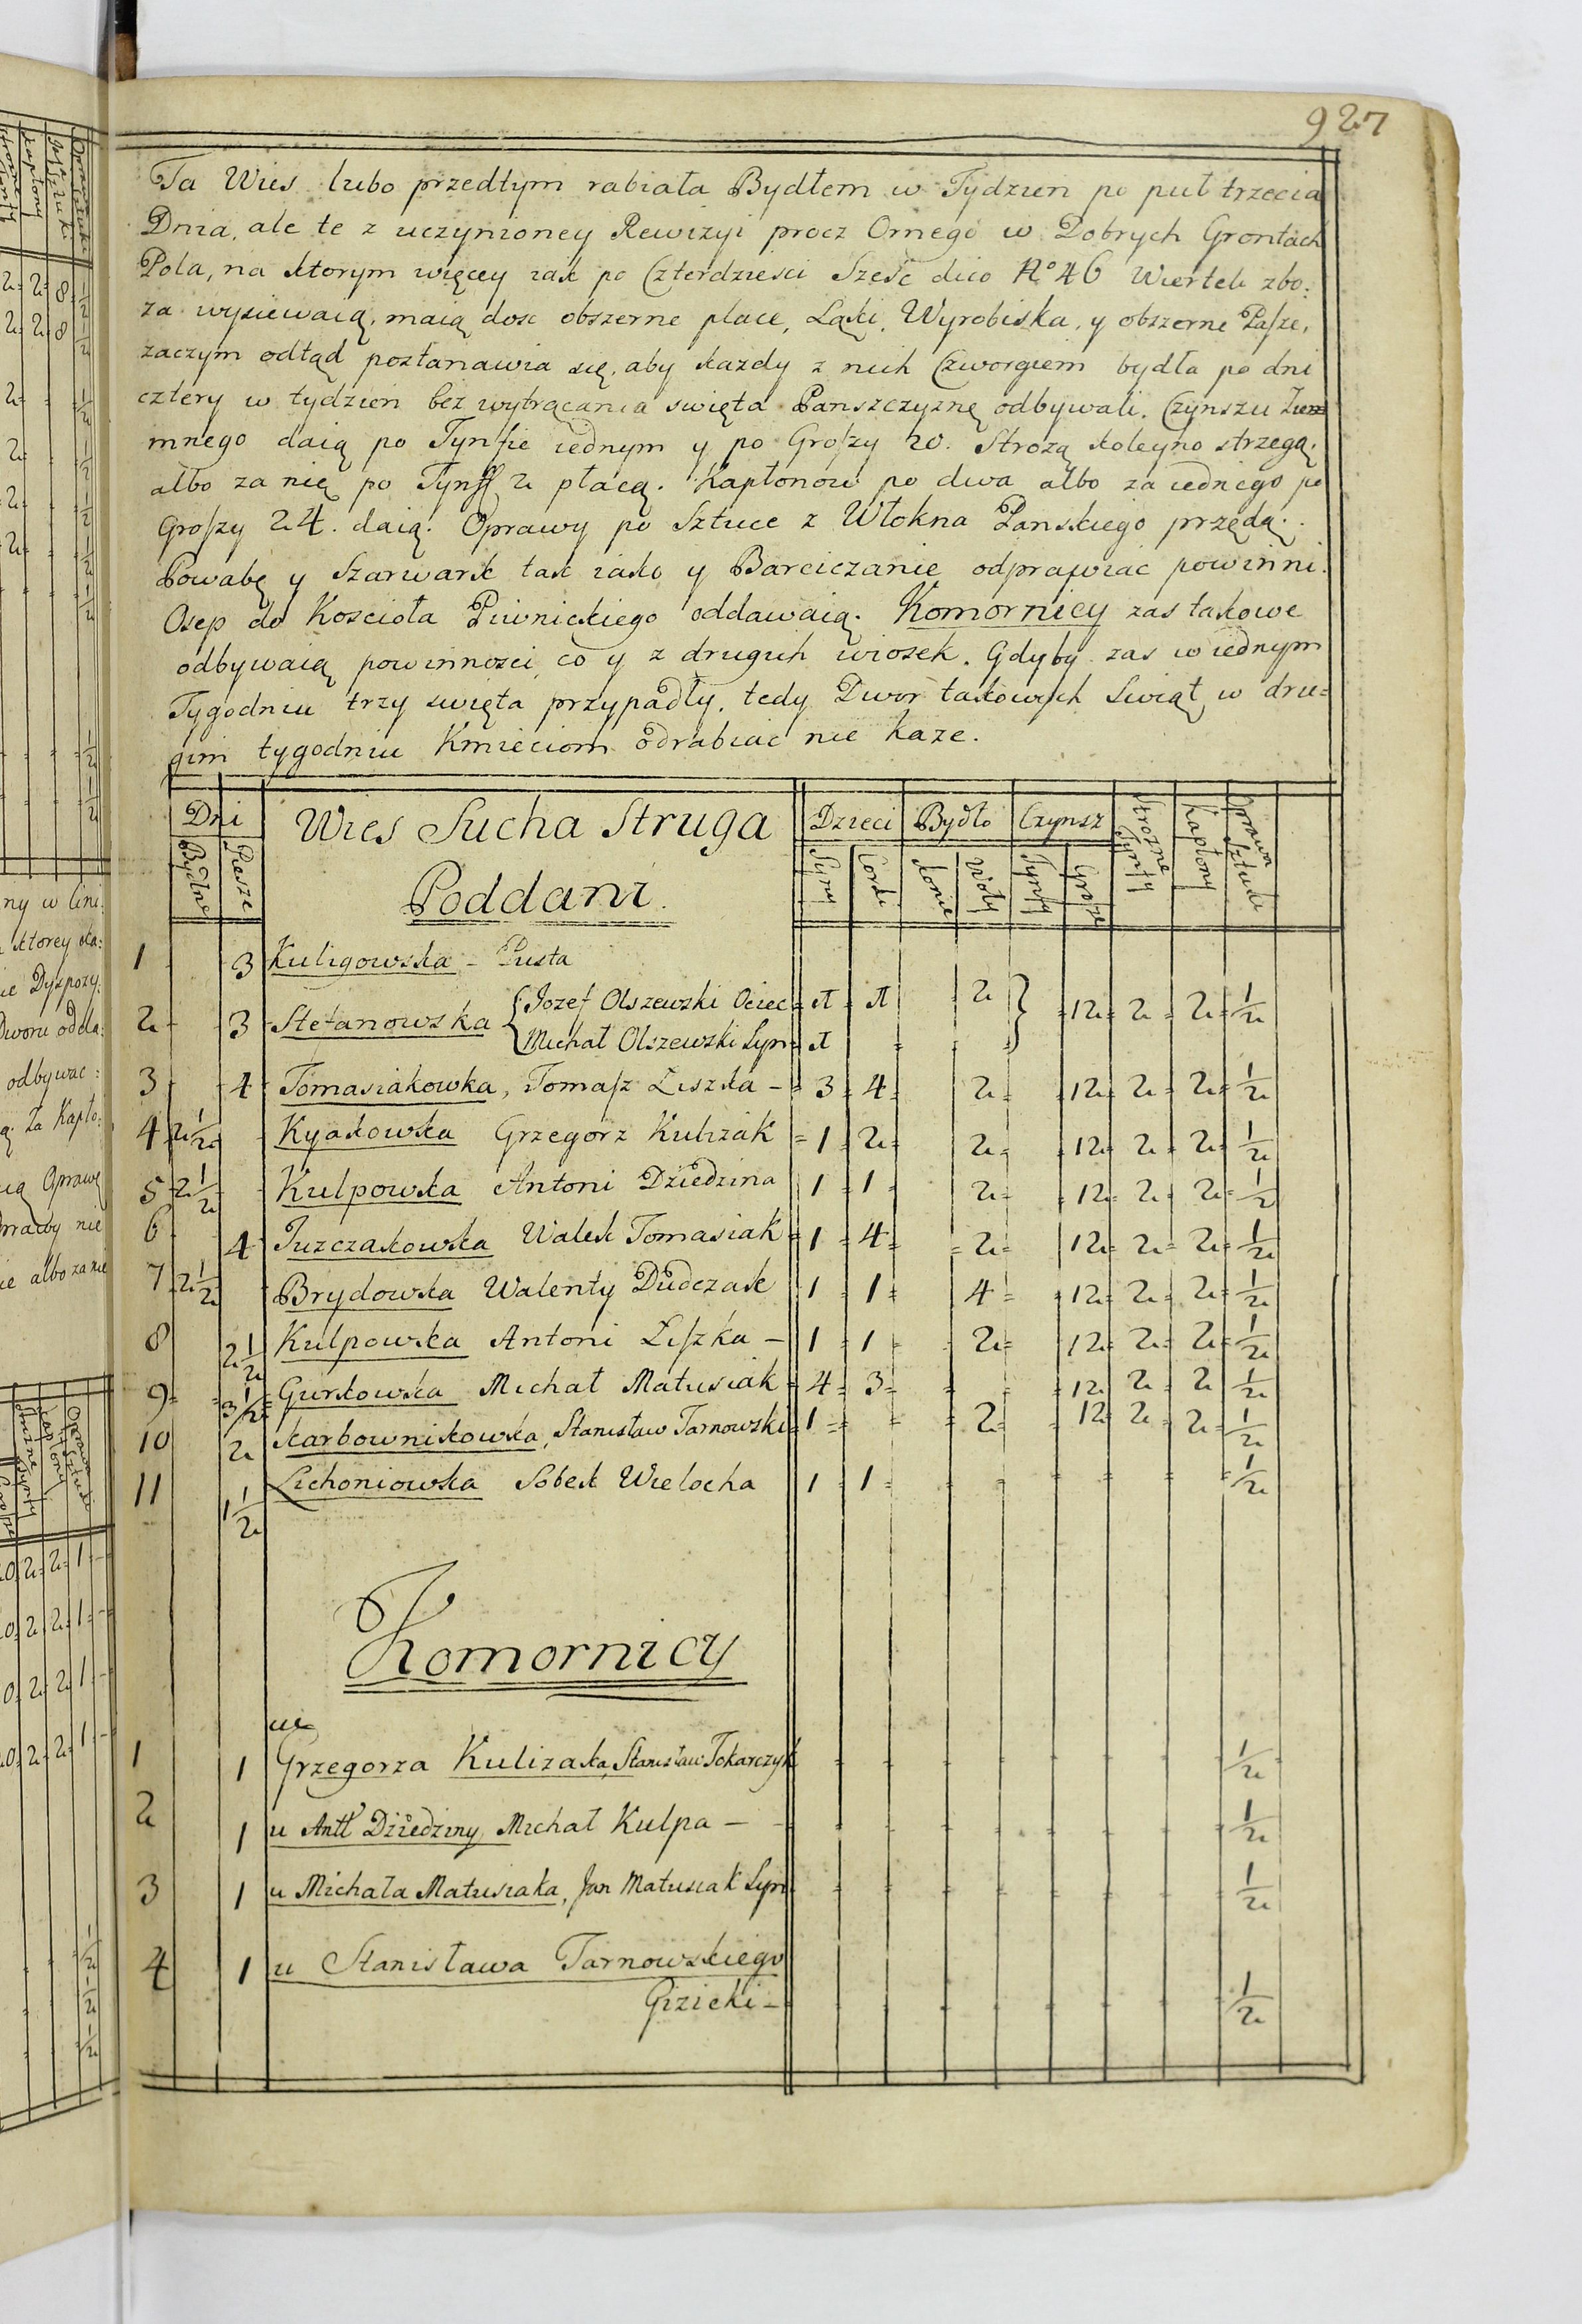 927
Ta Wies lubo przedtym rabiała Bydłem w Tydzien po puł trzecia
Dnia, ale te z uczynioney Rewizyi procz Ornego w Dobrych Grontach
Pola, na ktorym więcey iak po Czterdziesci Sześć dico No 46 Wiertek zbo:
za wysiewaią, maią dosc obszerne place, Ląki, Wyrobiska, y obszerne Pasze,
zaczym odtąd postanawia się, aby kazdy z nich Czworgiem bydła po dni
cztery w tydzień bez wytrącania swięta Panszczyznę odbywali. Czynszu
mnego daią po Tynfie iednym y po Groszy 20. Strozą koleyno strzegą,
albo za nię po Tynff 2 płacą. Kapłonow po dwa albo za iednego po
Groszy 24. daią. Oprawy po Sztuce z Włokna Panskiego przędą.
Powabę y Szarwark tak iako y Barciczanie odprawiac powinni.
Osep do Koscioła Piwnickiego oddawaią. Komornicy zas takowe
odbywaią powinnosci, co y z drugich wiosek. Gdyby zas w iednym
Tygodniu trzy swięta przypadły, tedy Dwor takowych Swiąt w dru=
gim tygodniu Kmieciom odrabiac nie kaze.
Dni Wies Sucha Struga Dzieci Bydło Czynsz Strozne Tynfy Kapłony Oprawa Sztuki
Bydlne Piesze Poddani. Syny Corki Konie Woły Tynfy Grosze
1 3 Kuligowska - Pusta
2 3 Stefanowska { Jozef Olszewski Ociec 2 } 12 2 2 1/2
Michał Olszewski Syn
3 4 Tomasiakowka, Tomasz Liszka - 3 4 2 12 2 2 1/2
4 2 1/2 Kyakowska Grzegorz Kulizak 1 2 2 12 2 2 1/2
5 2 1/2 Kulpowska Antoni Dziedzina 1 1 2 12 2 2 1/2
6 4 Juzczakowska Walek Tomasiak 1 4 2 12 2 2 1/2
7 2 1/2 Brydowska Walenty Dudczak 1 1 4 12 2 2 1/2
8 2 1/2 Kulpowska Antoni Liszka - 1 1 2 12 2 2 1/2
9 3 1/2 Gurkowska Michał Matusiak 4 3 12 2 2 1/2
10 2 Karbownikowska, Stanisław Tarnowski 1 2 12 2 2 1/2
11 1 1/2 Lichoniowska Sobek Wielocha 1 1 1/2
Komornicy
u
1 1 Grzegorza Kulizaka, Stanisław Tokarczyk 1/2
2 1 u Antt Dziedziny Michał Kulpa - 1/2
3 1 u Michała Matusiaka, Jan Matusiak Syn 1/2
4 1 u Stanisława Tarnowskiego
Gizicki - 1/2